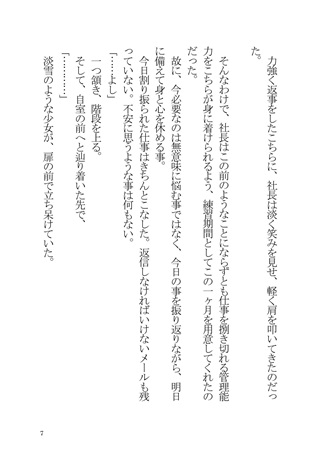 力強く返事をしたこちらに、社長は淡く笑みを見せ、軽く肩を叩いてきたのだっ
た。
そんなわけで、社長はこの前のようなことにならずとも仕事を捌き切れる管理能
力をこちらが身に着けられるよう、練習期間としてこの一ヶ月を用意してくれたの
だった。
故に、今必要なのは無意味に悩む事ではなく、今日の事を振り返りながら、明日
に備えて身と心を休める事。
今日割り振られた仕事はきちんとこなした。返信しなければいけないメールも残
っていない。不安に思うような事は何もない。
「……よし」
一つ頷き、階段を上る。
そして、自室の前へと辿り着いた先で、
「…………」
淡雪のような少女が、扉の前で立ち呆けていた。
7